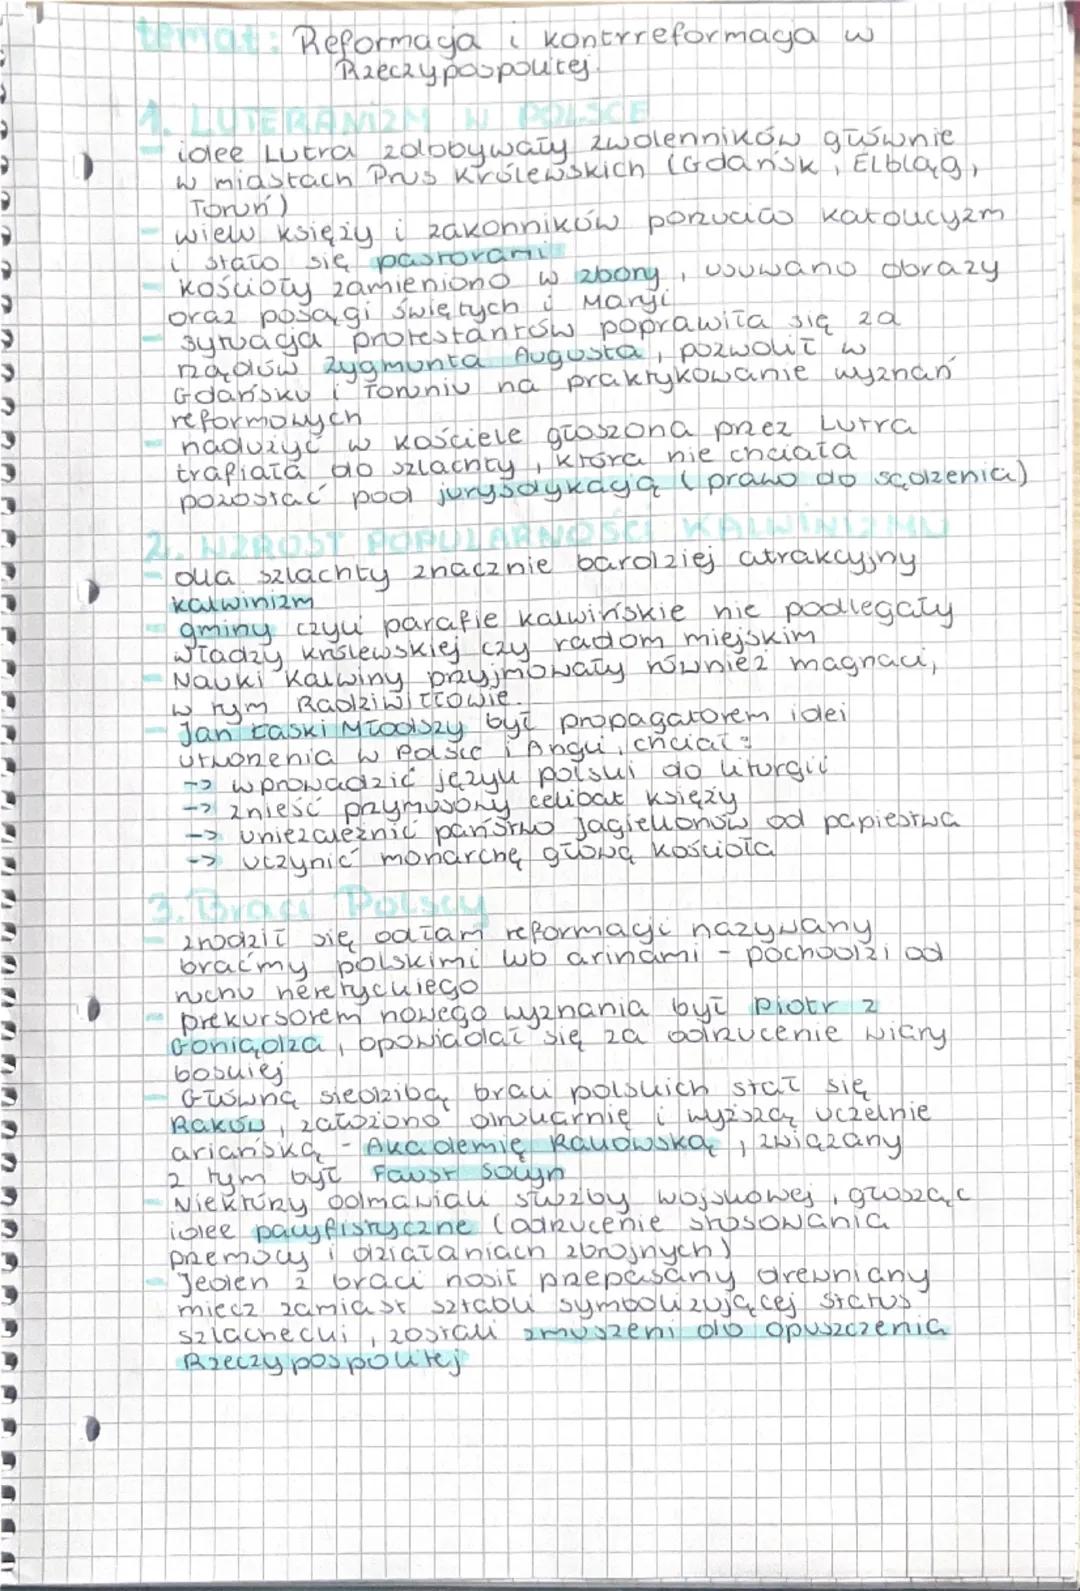 temat: Reformacja i kontrreformacja w
Rzeczypospolitej.
1. LUTERANIZM W POLSCE
- idee Lutra zdobywały zwolenników głównie
w miastach Prus Królewskich (Gdańsk, Elbląg,
Toruń)
- wielu księży i zakonników porzuciło katolicyzm
i stało się pastorami
- kościoły zamieniono w zbory, usuwano obrazy
oraz posągi świętych i Maryi
- sytuacja protestantów poprawiła się za
rządów Zygmunta Augusta, pozwolił w
Gdańsku i Toruniu na praktykowanie wyznań
reformowych
- nadużyć w kościele głoszona przez Lutra
trafiała do szlachty, która nie chciała
pozostać pod jurysdykacją (prawo do sądzenia)
2. WZROST POPULARNOŚCI KALWINIZMU
- dla szlachty znacznie bardziej atrakcyjny
kalwinizm
- gminy czyli parafie kalwińskie nie podlegały
władzy królewskiej czy radom miejskim
- Nauki Kalwiny przyjmowały również magnaci,
w tym Radziwiłłowie.
- Jan Łaski Młodszy był propagatorem idei
utworzenia w Polsce i Anglii, chciał:
-> wprowadzić język polski do liturgii
-> znieść przymusowy celibat księży
-> uniezależnić państwo Jagiellonów od papiestwa
-> uczynić monarchę głową kościoła
3. Bracia Polscy
- zrodził się odłam reformacji nazywany
braćmy polskimi lub arinami - pochodzi od
ruchu heretyckiego
- prekursorem nowego wyznania był Piotr z
Goniądza, opowiadał się za odrzucenie wiary
boskiej
- Główną siedzibą braci polskich stał się
Raków, założono drukarnię i wyższą uczelnie
ariańską - Akademię Rakowską, związany
z tym był Faust Socyn
- Niektórzy odmawiali służby wojskowej, głosząc
idee pacyfistyczne (odrzucenie stosowania
przemocy i działaniach zbrojnych)
- Jeden z braci nosił przepasany drewniany
miecz zamiast szabli symbolizującej status
szlachecki, zostali zmuszeni do opuszczenia
Rzeczypospolitej